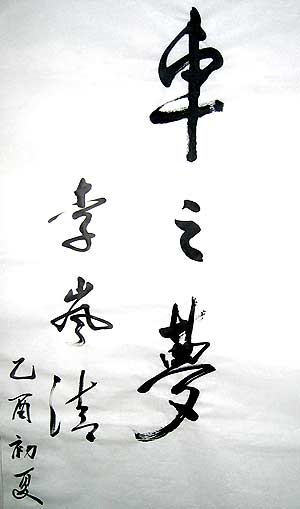 車之夢
李嵐清
乙酉初夏